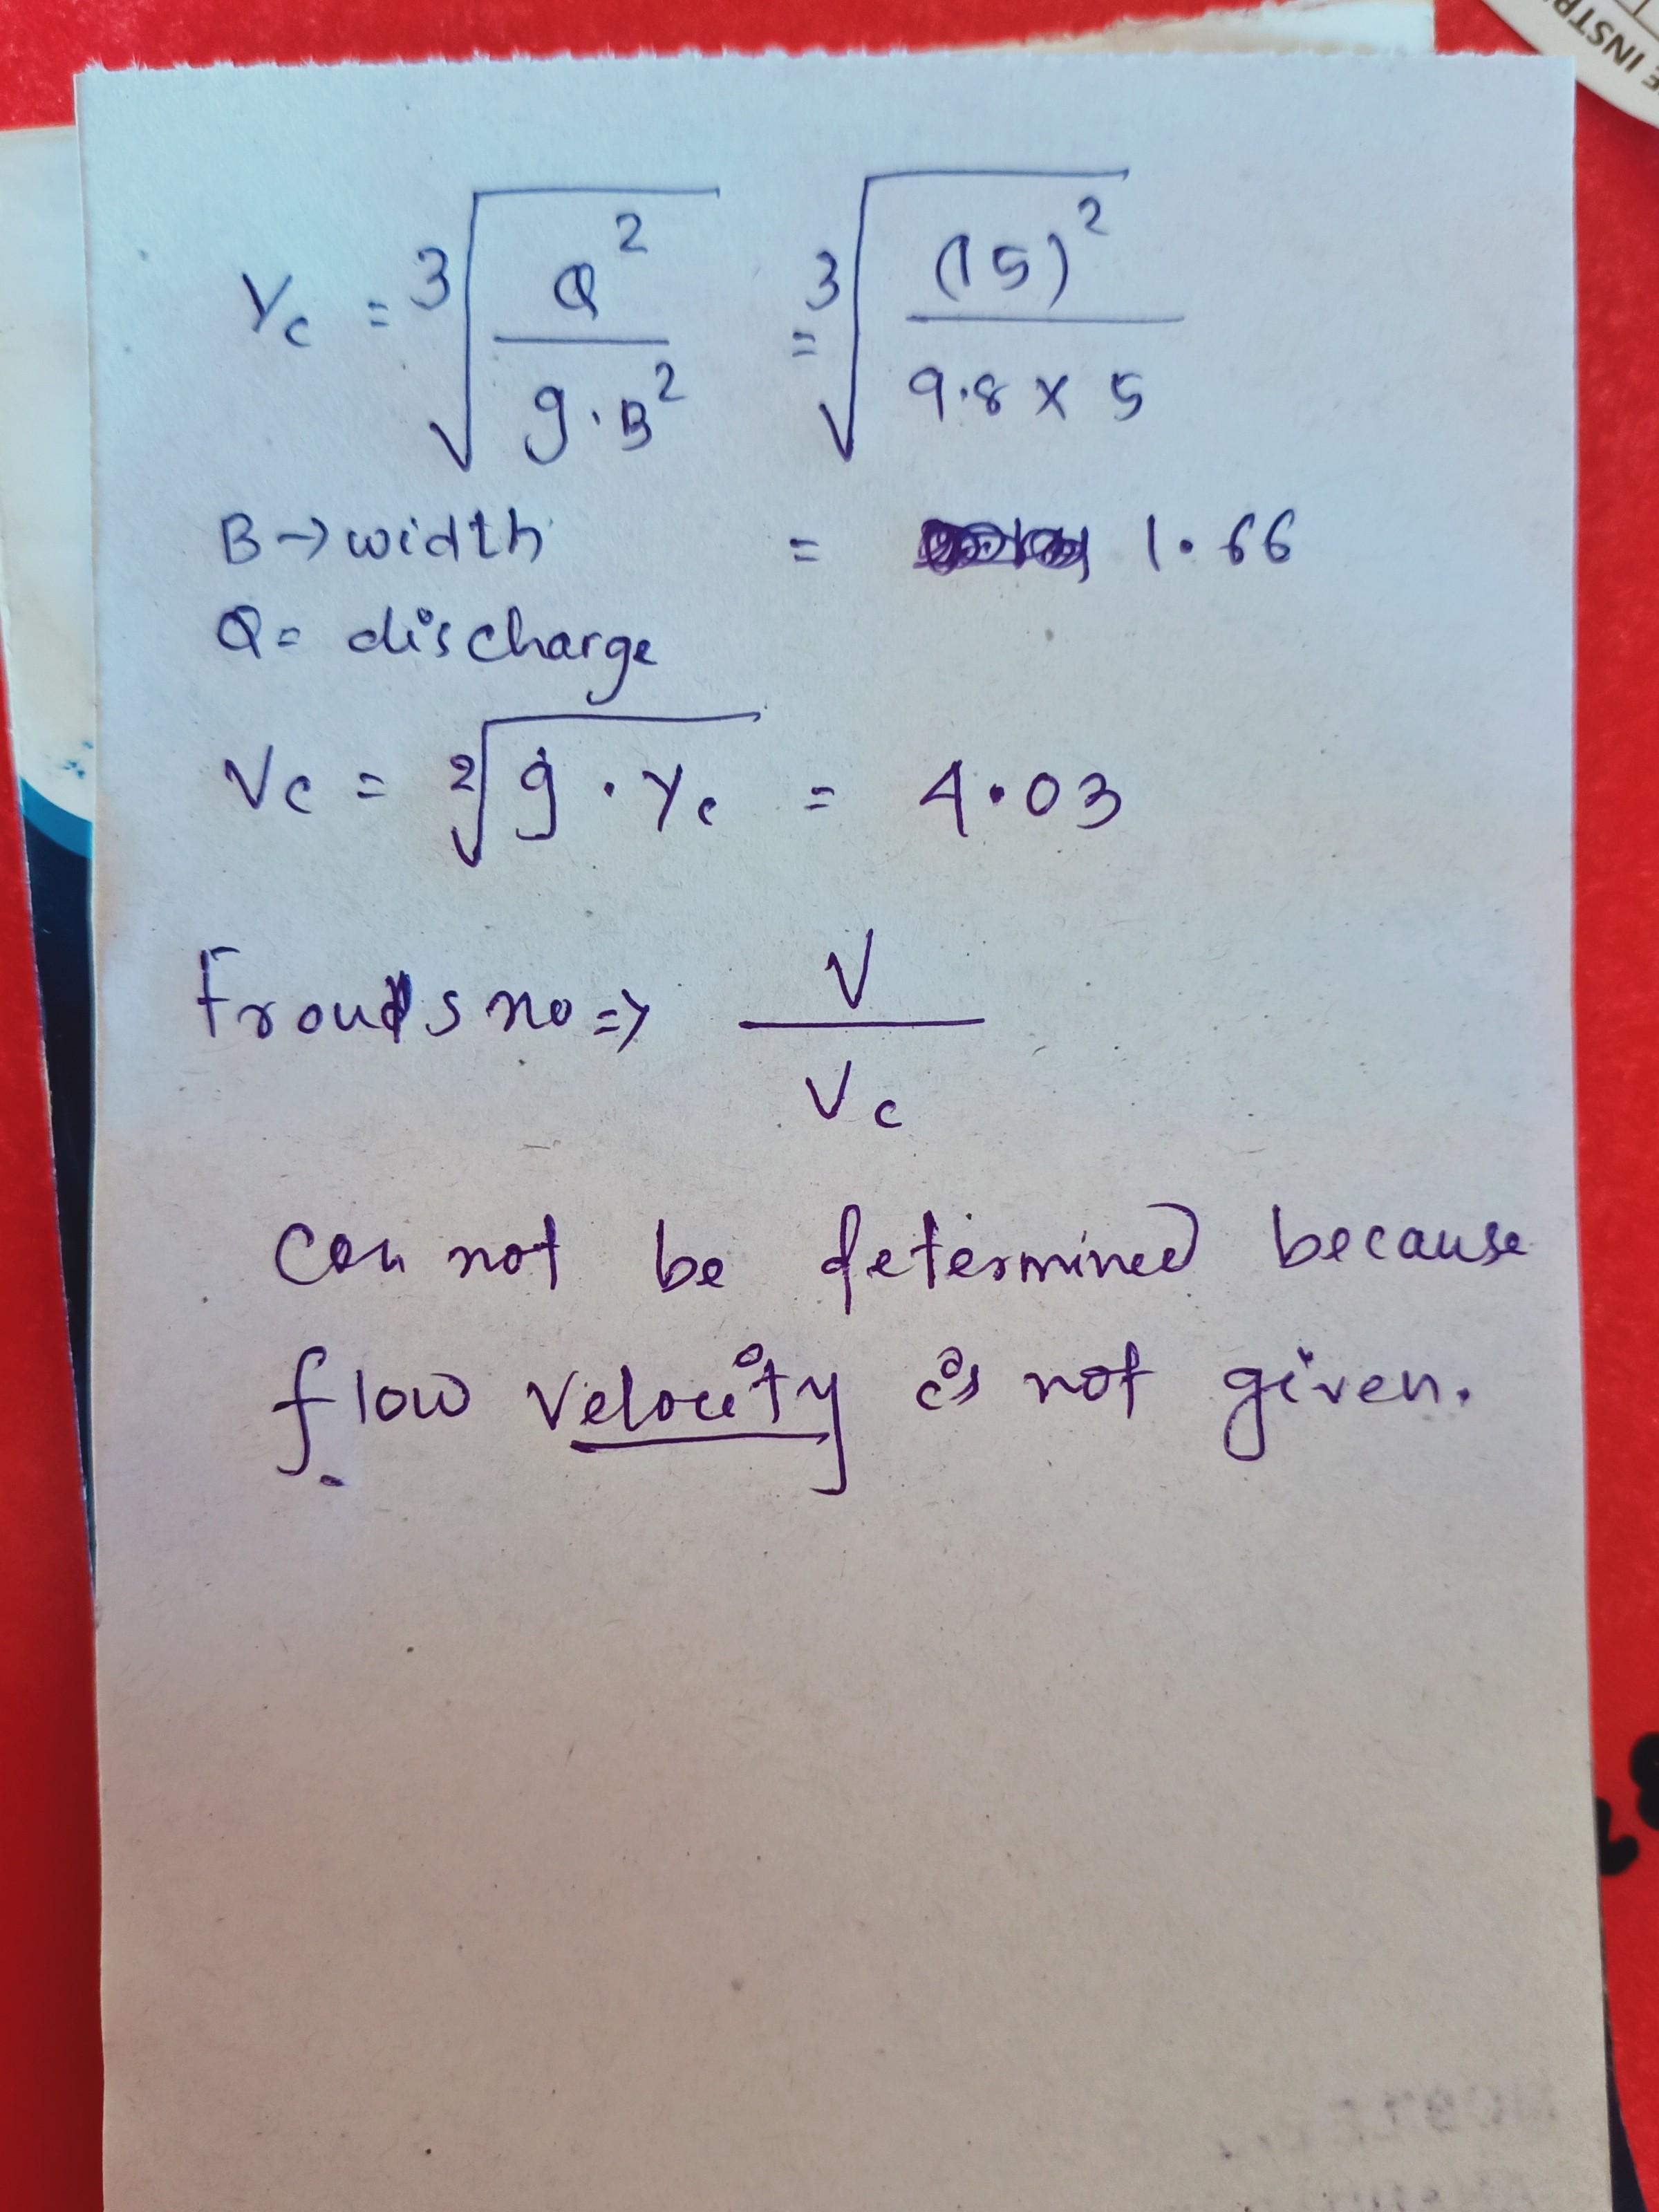 E INSTR
Yc = ∛(Q² / g·B²) = ∛((15)² / 9.8 x 5)
B → width = 1.66
Q = discharge
Vc = ²√(g · Yc) = 4.03
Frouds no => V / Vc
Can not be determined because
flow velocity is not given.